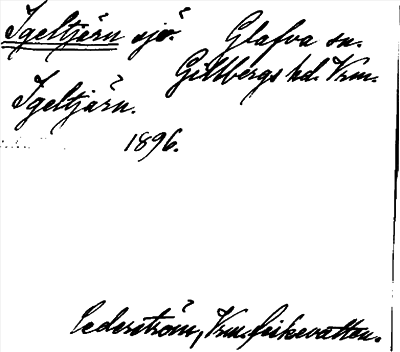 Igeltjärn sjö. Glafva sn.
Gillbergs hd. Vrm.
Igeltjärn.
1896.
Cederström, Vrm. fiskevatten.